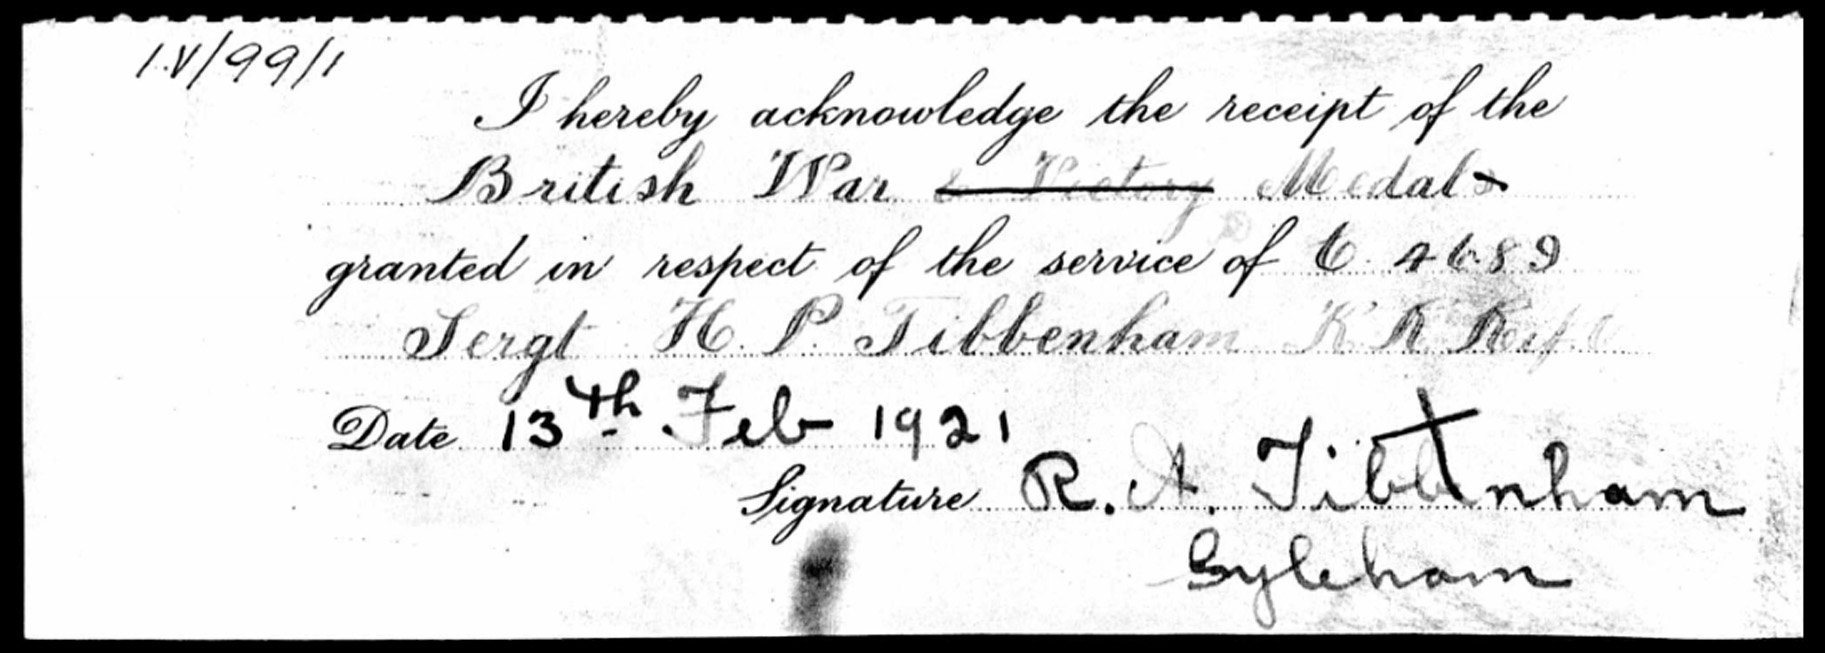 IV/99/1
I hereby acknowledge the receipt of the
British War & Victory Medals
granted in respect of the service of C 4689
Sergt H. P. Tibbenham K R Rif C
Date 13th Feb 1921
Signature R. A. Tibbenham
Syleham